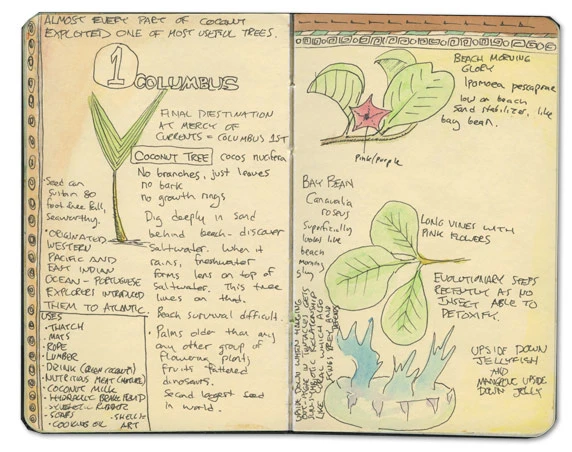 ALMOST EVERY PART OF COCONUT
EXPLOITED ONE OF MOST USEFUL TREES.
1 COLUMBUS
FINAL DIESTINATION
AT MERCY OF
CURRENTS = COLUMBUS 1ST
COCONUT TREE cocos nucifera
No branches, just leaves
no bark
no growth rings
Dig deeply in sand
behind beach - discover
saltwater. When it
rains, freshwater
forms lens on top of
saltwater. This tree
lives on that.
Beach survival difficult.
Palms older than any
any other group of
flowering plants
fruits fattened
dinosaurs.
Second largest seed
in world.
Seed can
sustain 80
foot free fall,
seaworthy.
ORIGINATED
WESTERN
PACIFIC AND
EAST INDIAN
OCEAN - PORTUGESE
EXPLORERS INTRODUCED
THEM TO ATLANTIC.
USES
THATCH
MATS
ROPE
LUMBER
DRINK (GREEN COCONUT)
NUTRITIOUS MEAT (MATURE)
COCONUT MILK
HYDRAULIC BRAKE FLUID
SYNTHETIC RUBBER
SOAPS SHELLS =
COOKING OIL ART
BEACH MORNING
GLORY
Ipomoea pescaprae
low on beach
Sand stabilizer, like
bay bean.
Pink/purple
BAY BEAN
Canavalia
roseus
Superficially
looks like
beach
morning
glory
LONG VINES WITH
PINK FLOWERS
EVOLUTIONARY SEEDS
RECENTLY AS NO
INSECT ABLE TO
DETOXIFY.
UPSIDE DOWN
JELLYFISH
AND
MANGROVE UPSIDE
DOWN JELLY
UPSIDE DOWN WHEN
TENTACLES GETS
SYMBIOTIC RELATIONSHIP
LIKE WHICH ALSO